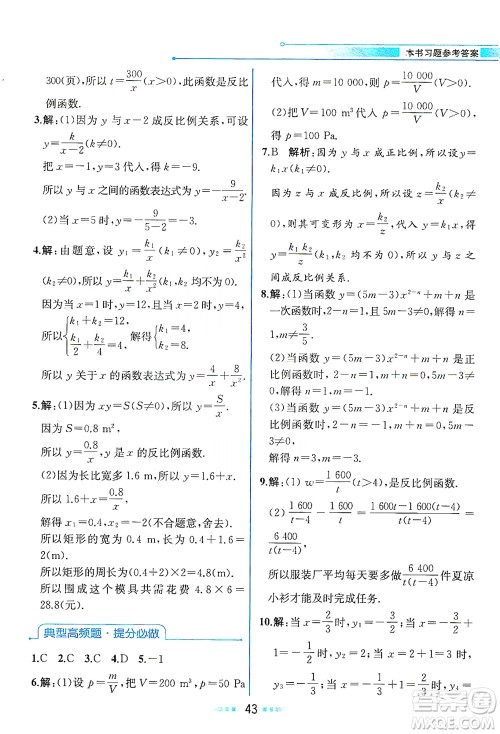 本书习题参考答案
300(页),所以 t=300/x,此函数是反比
例函数.
3.解:(1)因为 y 与 x-2 成反比例关系,可设
y=k/(x-2)(k≠0).
把 x=-1,y=3 代入,得 k=-9.
所以 y 与 x 之间的函数表达式为 y=-9/(x-2).
(2)当 x=5 时,y=-9/(5-2)=-3.
4.解:由题意,设 y₁=k₁/x,y₂=k₂/x²
(k₁≠0),所以 y=k₁/x+k₂/x²(k₁,k₂ 均不为 0).
因为当 x=1 时,y=2;当 x=2 时,y=1,
所以{k₁+k₂=2, k₁/2+k₂/4=1, 解得{k₁=
所以 y 关于 x 的函数表达式为 y=
5.解:(1)因为 xy=S(S≠0),所以 y=S/x.
因为 S=0.8 m²,
所以 y=0.8/x,y 是 x 的反比例函数.
(2)因为长比宽多 1.6 m,
所以 1.6+x=0.8/x.
解得 x₁=0.4,x₂=-2(不合题意,舍去).
所以矩形的长为 1.6+x=1.6+0.4=
2(m).
所以矩形的周长为 2×(2+0.4)=4.8(m).
所以围成此模具共花费 4.8×6=
28.8(元).
典型高频题·提分必做
1.C 2.C 3.C 4.D 5.-1
6.解:(1)设 p=m/V,把 V=200,p=50 Pa
代入,得 m=10 000,p=10 000/V(V>0).
(2)把 V=100 m³ 代入 p=10 000/V(V>0),
得 p=100 Pa.
7.B 解析:因为 y 与 x 成正比例,所以 y=
k₁x(k₁≠0).
因为 x 与 z 成反比例关系,所以 x=k₂/z(k₂≠
0),将其代入 y=k₁x,得 y=
(k₁,k₂ 均不为 0).所以 y 与 z 之
间成反比例关系.
8.解:(1)当函数 y=(5m-3)x²⁻ⁿ+m+n 是
一次函数时,2-n=1,且 5m-3≠0,解得 n=
1,m≠3/5.
(2)当函数 y=(5m-3)x²⁻ⁿ+m+n 是正
比例函数时,
解得 n=1,m=-1.
(3)当函数 y=(5m-3)x²⁻ⁿ+m+n 是反
比例函数时,
解得 n=3,m=-3.
9.解:(1)w=1 600/t(t>4),是反比例函数.
(2)1 600/(t-4)-1 600/t=(1 600t-1 600(t-4))/(t(t-4))=
6 400/(t(t-4)).
所以服装厂平均每天要多做 6 400/(t(t-4)) 件夏凉
小衫才能及时完成任务.
10.解:
43
答案圈
MXQE.COM